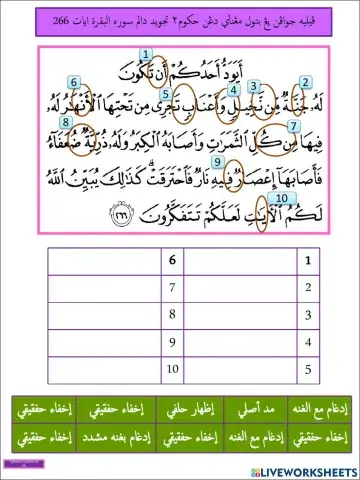 ڤيليه جواڤن يڠ بتول مڠناءي دڠن حكوم٢ تجويد دالم سوره البقرة ايات 266
1
أَيَوَدُّ أَحَدُكُمْ أَن تَكُونَ
6 5 4 3 2
لَهُۥ جَنَّةٌ مِّن نَّخِيلٍ وَأَعْنَابٍ تَجْرِى مِن تَحْتِهَا ٱلْأَنْهَٰرُ لَهُۥ
8 7
فِيهَا مِن كُلِّ ٱلثَّمَرَٰتِ وَأَصَابَهُ ٱلْكِبَرُ وَلَهُۥ ذُرِّيَّةٌ ضُعَفَآءُ
9
فَأَصَابَهَآ إِعْصَارٌ فِيهِ نَارٌ فَٱحْتَرَقَتْ ۗ كَذَٰلِكَ يُبَيِّنُ ٱللَّهُ
10
لَكُمُ ٱلْءَايَٰتِ لَعَلَّكُمْ تَتَفَكَّرُونَ ٢٦٦
6 1
7 2
8 3
9 4
10 5
إدغام مع الغنه مد أصلي إظهار حلقي إخفاء حقيقي إخفاء حقيقي
إخفاء حقيقي إدغام مع الغنه إخفاء حقيقي إدغام بغنه مشدد إخفاء حقيقي
LIVEWORKSHEETS